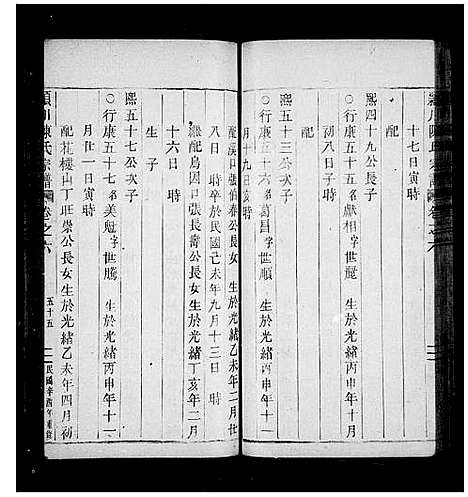 潁川陳氏宗譜 卷之六
十七日寅時
熙四十九公長子
○行康五十五名獻相字世麗 生於光緒丙申年十一
月子時
配
熙五十三公次子
○行康五十六名葛昌字世順 生於光緒丙申年十一
月十九日亥時
配溪口張伯春公長女 生於光緒乙未年二月廿
八日 時卒於民國己未年九月十三日 時
繼配烏因口張長壽公長女生於光緒丁亥年二月
十六日 時
生子
熙五十七公次子
○行康五十七名美魁字世騰 生於光緒丙申年十一
月廿一日寅時
配花樓山丁旺崇公長女生於光緒乙未年四月初
潁川陳氏宗譜 卷之六 五十五 民國辛酉年重修